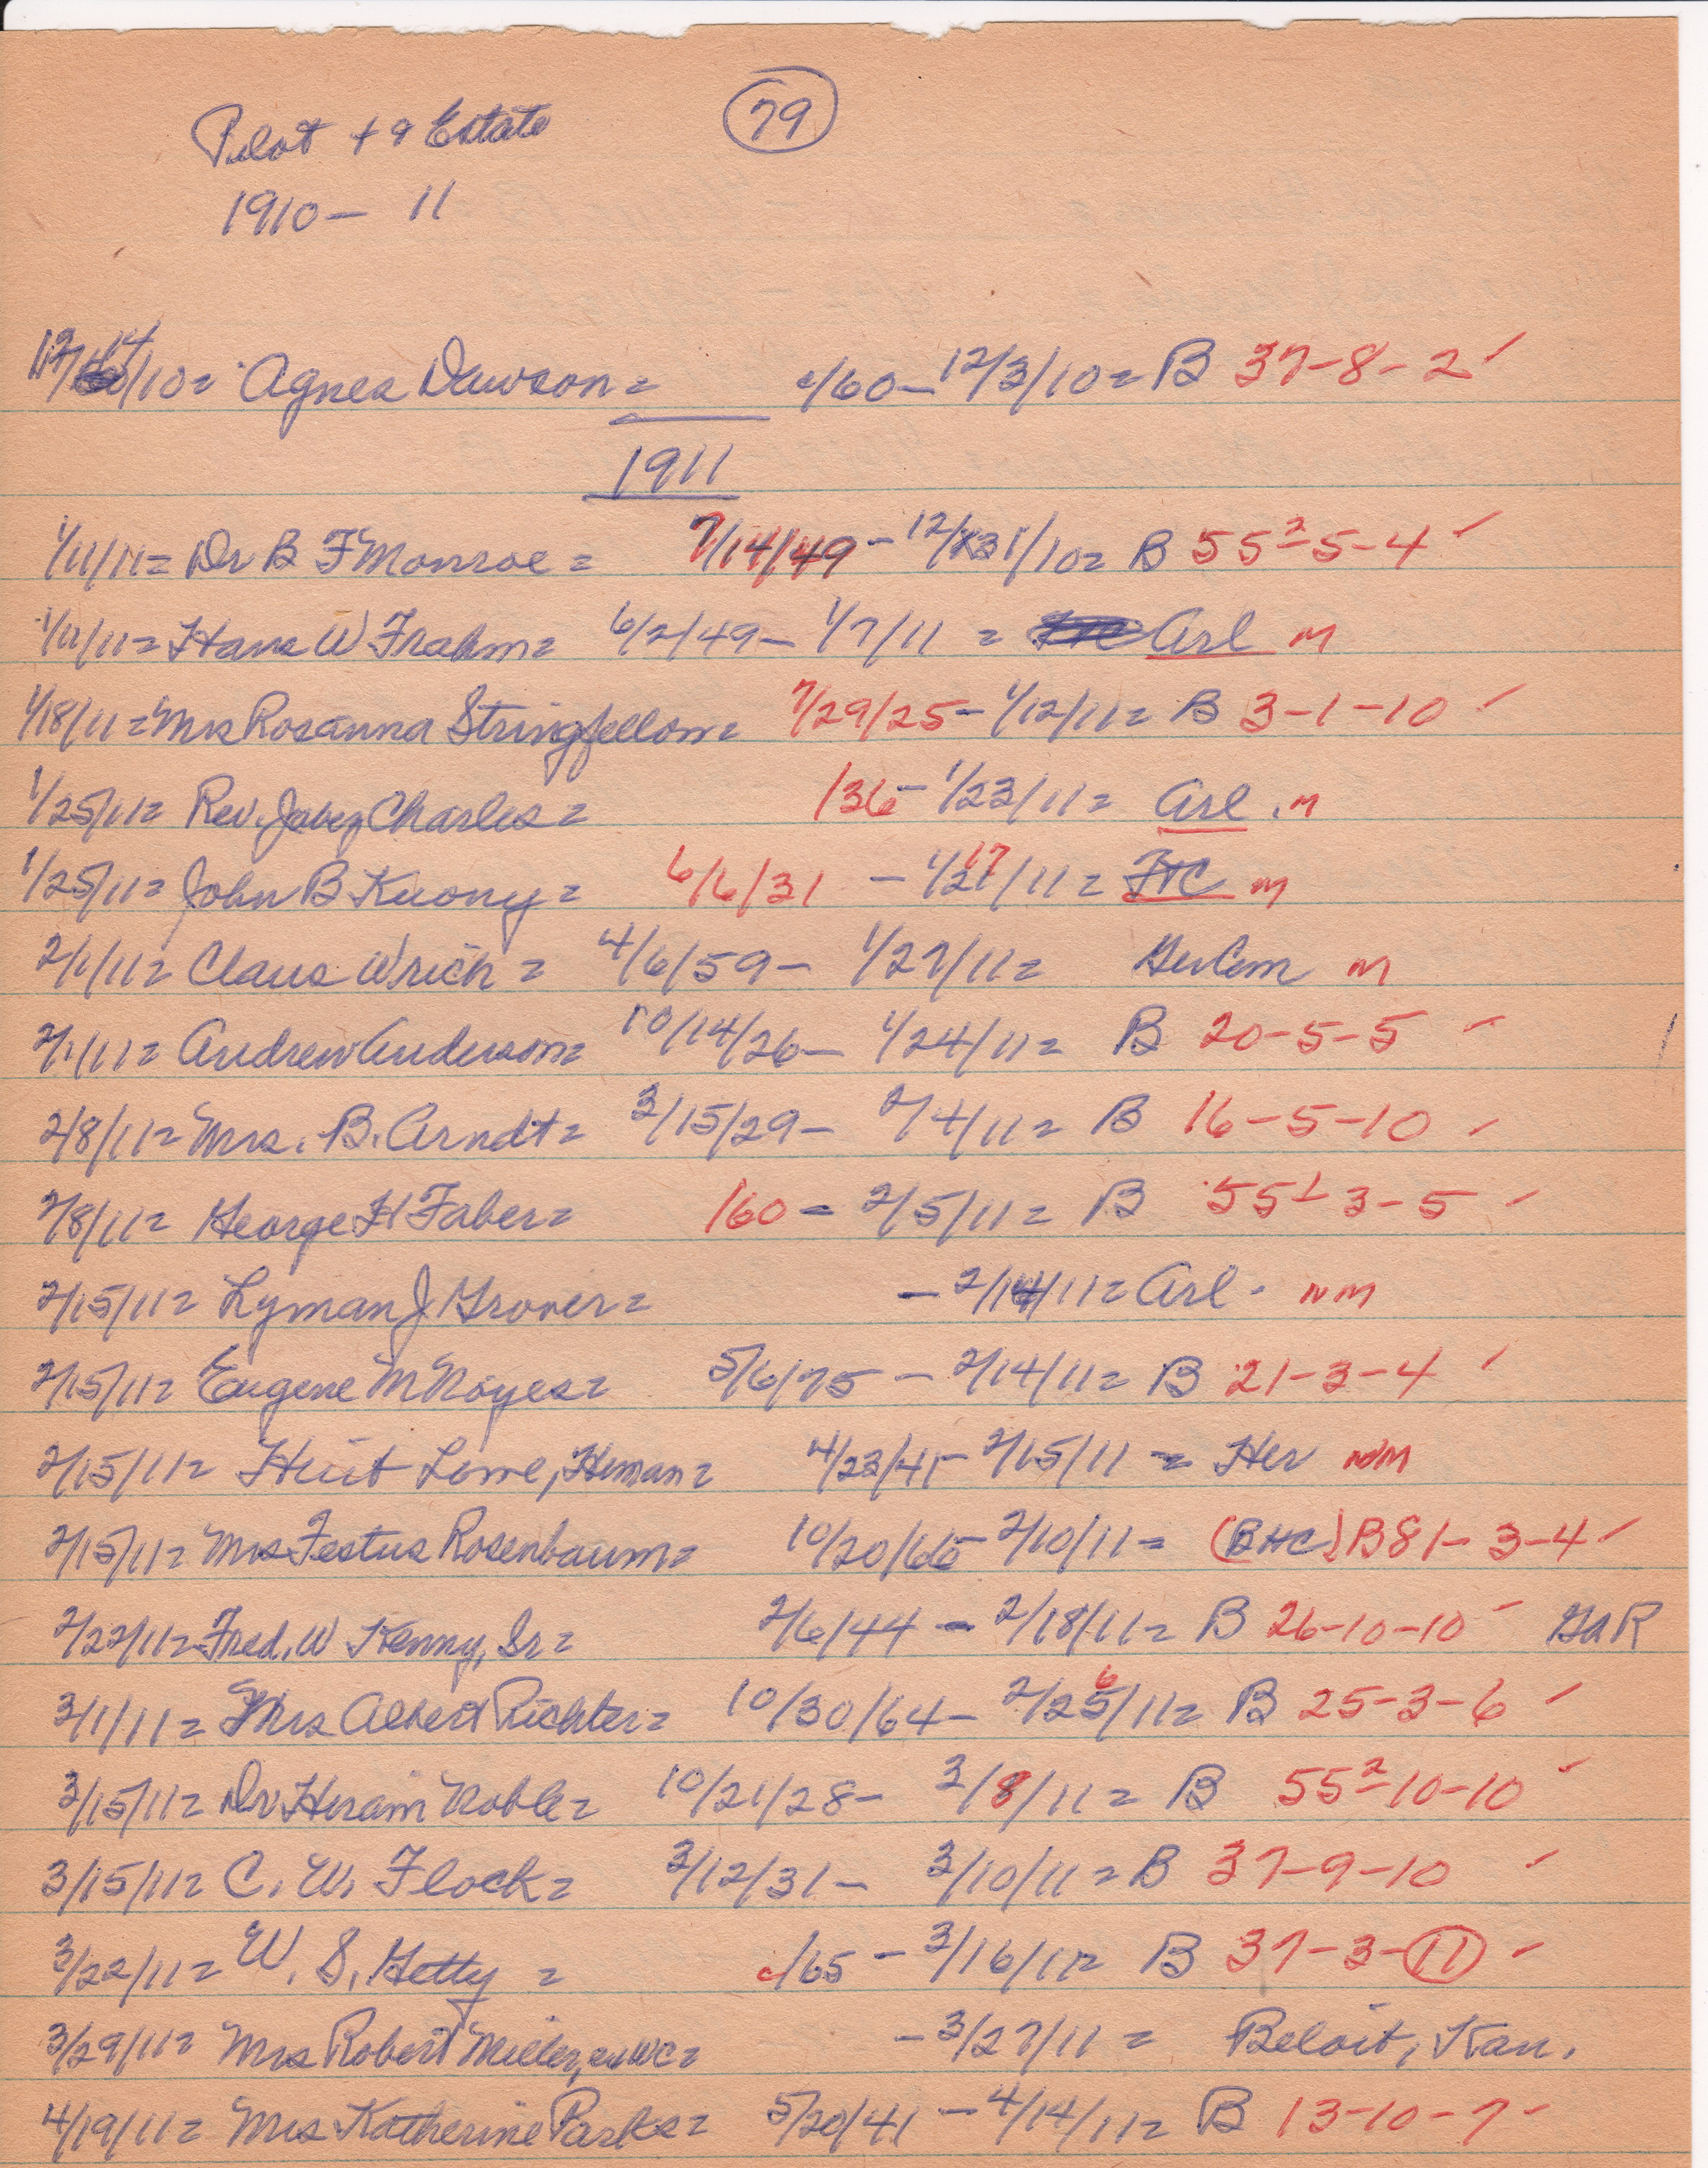 79
Pilot + 9 Estate
1910 - 11
12/14/10 = Agnes Dawson = c/60 - 12/3/10 = B 37-8-2 ✓
1911
1/11/11 = Dr B F Monroe = 7/14/49 - 12/31/10 = B 55²-5-4 ✓
1/11/11 = Hans W Frahm = 6/2/49 - 1/7/11 = Arl M
1/18/11 = Mrs Rosanna Stringfellow = 7/29/25 - 1/12/11 = B 3-1-10 ✓
1/25/11 = Rev. Jabez Charles = /36 - 1/23/11 = Arl. M
1/25/11 = John B Kuony = 6/6/31 - 1/17/11 = FtC M
2/1/11 = Claus Wrich = 4/6/59 - 1/27/11 = Ger Cem M
2/1/11 = Andrew Anderson = 10/14/26 - 1/24/11 = B 20-5-5 ✓
2/8/11 = Mrs. B. Arndt = 3/15/29 - 2/4/11 = B 16-5-10 ✓
2/8/11 = George H Faber = /60 = 2/5/11 = B 55¹-3-5 ✓
2/15/11 = Lyman J Grover = - 2/14/11 = Arl. NM
2/15/11 = Eugene M Noyes = 5/6/75 - 2/14/11 = B 21-3-4 ✓
2/15/11 = Lowe, Heman = 4/23/41 - 2/15/11 = Her NM
2/15/11 = Mrs Festus Rosenbaum = 10/20/65 - 2/10/11 = (BHC) B81-3-4 ✓
2/22/11 = Fred. W Kenny, Sr = 2/6/44 - 2/18/11 = B 26-10-10 ✓ GAR
3/1/11 = Mrs Albert Richter = 10/30/64 - 2/26/11 = B 25-3-6 ✓
3/15/11 = Dr Hiram Noble = 10/21/28 - 3/8/11 = B 55²-10-10 ✓
3/15/11 = C. W. Flock = 3/12/31 - 3/10/11 = B 37-9-10 ✓
3/22/11 = W. S. Hetty = c/65 - 3/16/11 = B 37-3-11 ✓
3/29/11 = Mrs Robert Miller, = - 3/27/11 = Beloit, Kan.
4/19/11 = Mrs Katherine Parks = 5/20/41 - 4/14/11 = B 13-10-7 ✓